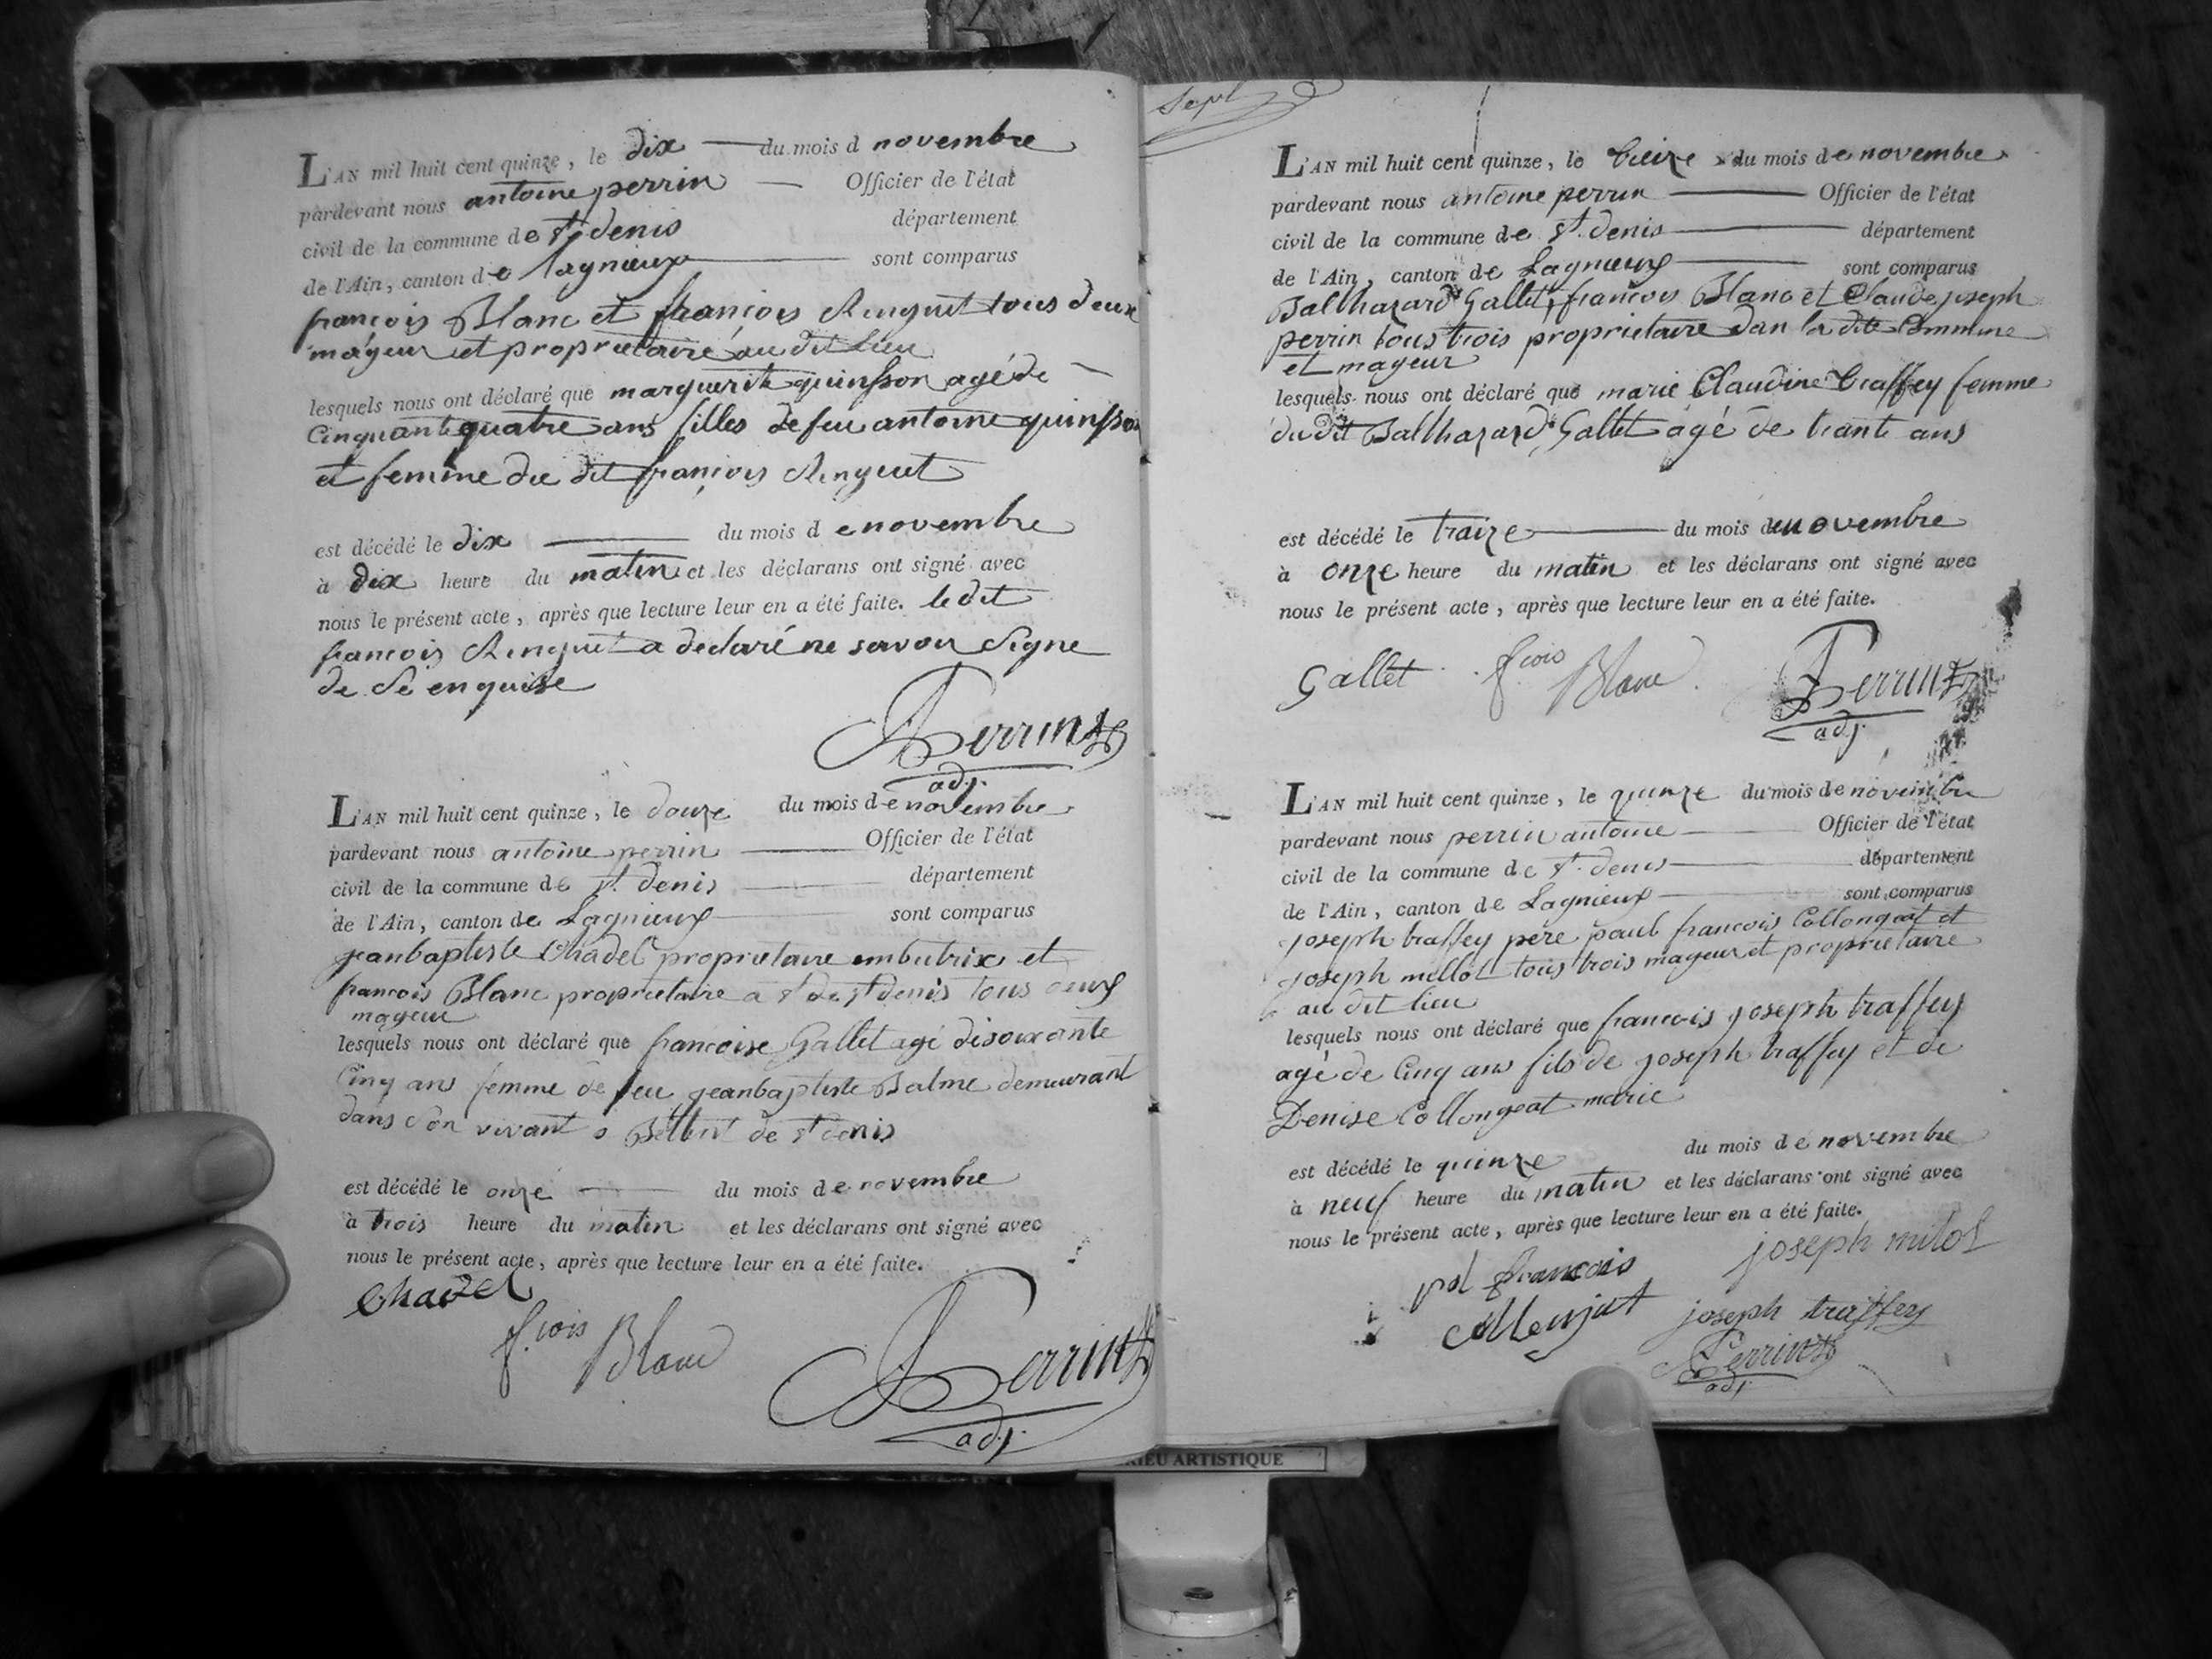 L'AN mil huit cent quinze, le dix du mois d novembre
pardevant nous antoine perrin Officier de l'état
civil de la commune de st denis département
de l'Ain, canton de lagnieux sont comparus
françois Blanc et françois Renguet tous deux
mageur et proprietaire au dit Lieu
lesquels nous ont déclaré que marguerite quinsson agé de
Cinquante quatre ans filles de feu antoine quinsson
et femme du dit françois Renguet
est décédé le dix du mois d e novembre
à dix heure du matin et les déclarans ont signé avec
nous le présent acte, après que lecture leur en a été faite. le dit
francois Renguet a declaré ne savoir Signe
de Se enquise
Perrin
adj.
L'AN mil huit cent quinze, le douze du mois de novembre
pardevant nous antoine perrin Officier de l'état
civil de la commune de st. denis département
de l'Ain, canton de Lagnieux sont comparus
jeanbaptiste Chadel proprietaire embutrix et
francois Blanc proprietaire a st de st denis tous deux
mageur
lesquels nous ont déclaré que francoise Gallet agé disoixante
Cinq ans femme de feu jeanbaptiste Balme demeurant
dans son vivant a de st denis
est décédé le onze du mois de novembre
à trois heure du matin et les déclarans ont signé avec
nous le présent acte, après que lecture leur en a été faite.
Chadel
f.cois Blanc
Perrin
adj.
Sept
L'AN mil huit cent quinze, le treize du mois de novembre
pardevant nous antoine perrin Officier de l'état
civil de la commune de st. denis département
de l'Ain, canton de Lagnieux sont comparus
Balthazard Gallet, francois Blanc et Claude joseph
perrin tous trois proprietaire dan la dite Commune
et mageur
lesquels nous ont déclaré que marie Claudine traffey femme
du dit Balthazard Gallet agé de trante ans
est décédé le traize du mois de novembre
à onze heure du matin et les déclarans ont signé avec
nous le présent acte, après que lecture leur en a été faite.
Gallet f.cois Blanc Perrin
adj.
L'AN mil huit cent quinze, le quinze du mois de novembre
pardevant nous perrin antoine Officier de l'état
civil de la commune de st. denis département
de l'Ain, canton de Lagnieux sont comparus
joseph traffey père paul francois Collongeat et
joseph millot tous trois mageur et proprietaire
au dit lieu
lesquels nous ont déclaré que francois joseph traffey
agé de Cinq ans fils de joseph traffey et de
Denise Collongeat marie
est décédé le quinze du mois de novembre
à neuf heure du matin et les déclarans ont signé avec
nous le présent acte, après que lecture leur en a été faite.
pol francois joseph milot
collonjat joseph traffey
Perrin
adj.
RIEU ARTISTIQUE